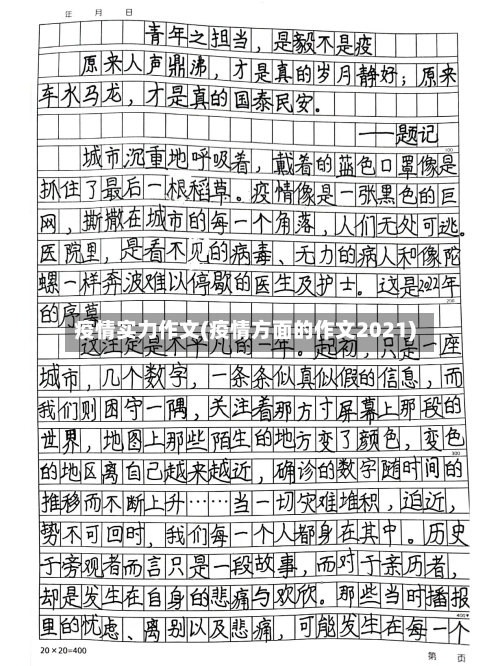 年 月 日
青年之担当，是毅不是疫
原来人声鼎沸，才是真的岁月静好；原来
车水马龙，才是真的国泰民安。
——题记
100
城市沉重地呼吸着，戴着的蓝色口罩像是
抓住了最后一根稻草。疫情像是一张黑色的巨
网，撕撒在城市的每一个角落，人们无处可逃。
医院里，是看不见的病毒、无力的病人和像陀
螺一样奔波难以停歇的医生及护士。这是2022年
200
的序幕
疫情实力作文(疫情方面的作文2021)
这注定是不平凡的一年。起初，只是一座
城市，几个数字，一条条似真似假的信息，而
我们则困守一隅，关注着那方寸屏幕上那段的
世界，地图上那些陌生的地方变了颜色，变色
300
的地区离自己越来越近，确诊的数字随时间的
推移而不断上升……当一切灾难堆积，迫近，
势不可回时，我们每一个人都身在其中。历史
于旁观者而言只是一段故事，而对于亲历者，
却是发生在自身的悲痛与欢欣。那些当时播报
400
里的忧虑、离别以及悲痛，可能发生在每一个
20×20=400
第 页